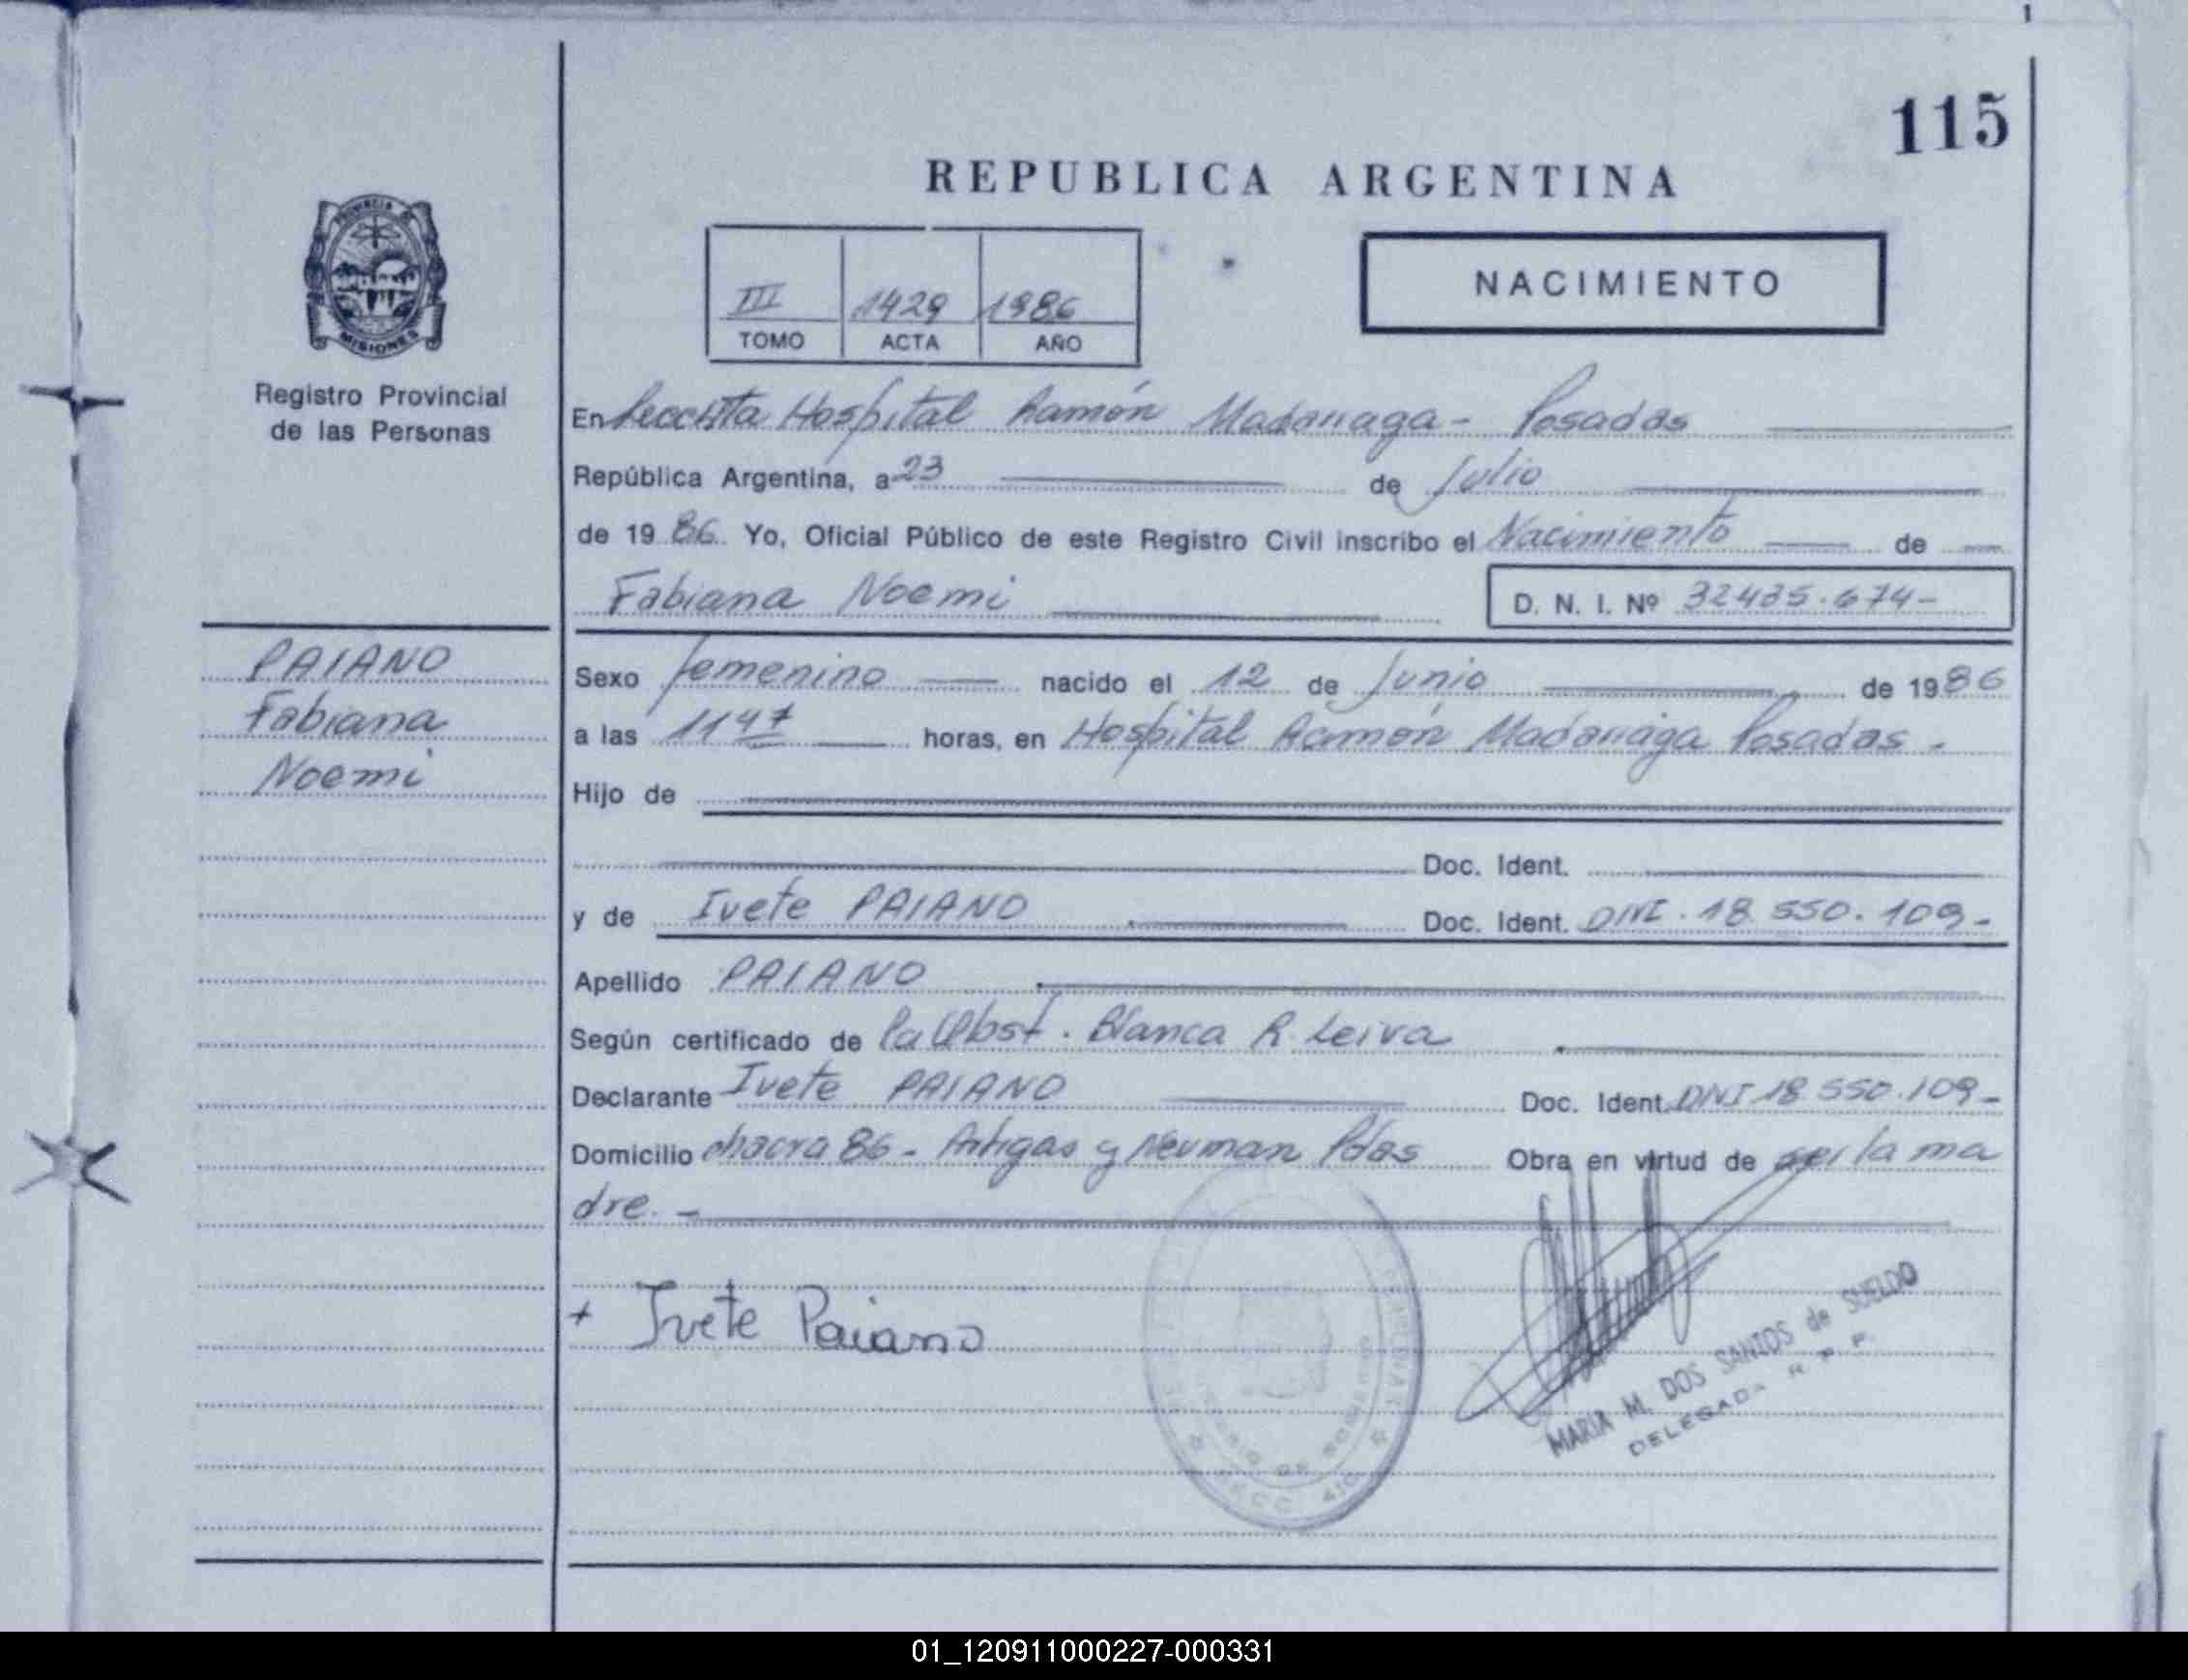 115
REPUBLICA ARGENTINA
PROVINCIA DE
MISIONES
Registro Provincial
de las Personas
NACIMIENTO
III 1429 1986
TOMO ACTA AÑO
En Hospital Ramón Madariaga - Posadas
República Argentina, a 23 de Julio
de 1986. Yo, Oficial Público de este Registro Civil inscribo el Nacimiento de
Fabiana Noemi D. N. I. Nº 32435.674-
PAIANO
Fabiana
Noemi
Sexo femenino nacido el 12 de Junio de 1986
a las 1147 horas, en Hospital Ramón Madariaga Posadas.
Hijo de
Doc. Ident.
y de Ivete PAIANO Doc. Ident. DNI. 18.550.109-
Apellido PAIANO
Según certificado de la Obst. Blanca R. Leiva
Declarante Ivete PAIANO Doc. Ident. DNI 18.550.109-
Domicilio chacra 86 - Artigas y Neuman Pdas Obra en virtud de ser la ma
dre. -
+ Ivete Paiano
MARIA M. DOS SANTOS de SUELDO
DELEGADA R. P. P.
01_120911000227-000331